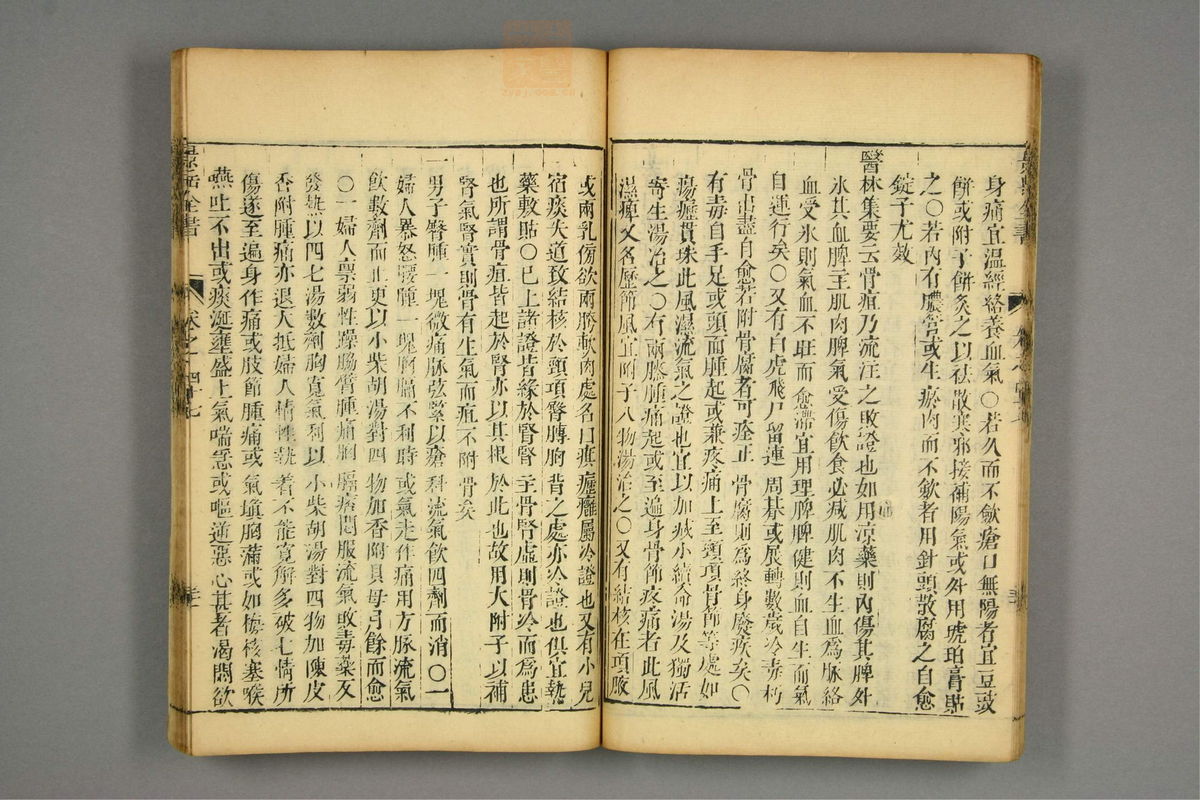 身痛宜温經絡養血氣〇若久而不斂瘡口無陽者宜豆豉
餅或附子餅灸之以祛散寒邪接補陽氣或外用琥珀膏貼
之〇若內有膿管或生瘀肉而不斂者用針頭散腐之自愈
錠子尤效
醫林集要云骨疽乃流注之敗證也如用涼藥則內傷其脾外
氷其血脾主肌肉脾氣受傷飲食必減肌肉不生血爲脉絡
血受氷則氣血不旺而愈滯宜用理脾脾健則血自生而氣
自運行矣〇又有白虎飛尸留連周碁或展轉數歲冷毒朽
骨出盡自愈若附骨腐者可痊正骨腐則爲終身廢疾矣〇
有毒自手足或頭面腫起或兼疼痛上至頸項骨節等處如
癘癧貫珠此風濕流氣之證也宜以加減小續命湯及獨活
寄生湯治之〇有兩膝腫痛起或至遍身骨節疼痛者此風
濕痺又名歷節風宜附子八物湯治之〇又有結核在項腋
或兩乳傍欲兩胯軟肉處名曰㾄癧癰屬冷證也又有小兒
宿痰失道致結核於頸項臂膊胸背之處亦冷證也俱宜熱
藥敷貼〇已上諸證皆緣於腎腎主骨腎虛則骨冷而爲患
也所謂骨疽皆起於腎亦以其根於此也故用大附子以補
腎氣腎實則骨有生氣而疽不附骨矣
一男子臂腫一塊微痛脉弦緊以瘡科流氣飲四劑而消〇一
婦人暴怒腰腫一塊胸膈不利時或氣走作痛用方脉流氣
飲數劑而止更以小柴胡湯對四物加香附貝母弓餘而愈
〇一婦人禀弱性躁腸臂腫痛胸膈痞悶服流氣敗毒藥反
發熱以四七湯數劑胸寬氣利以小柴胡湯對四物加陳皮
香附腫痛亦退大抵婦人情性執着不能寬解多破七情所
傷遂至遍身作痛或肢節腫痛或氣塡胸滿或如梅核塞喉
嚥吐不出或痰涎壅盛上氣喘急或嘔逆惡心甚者渴悶欲
景岳全書
卷之四十七